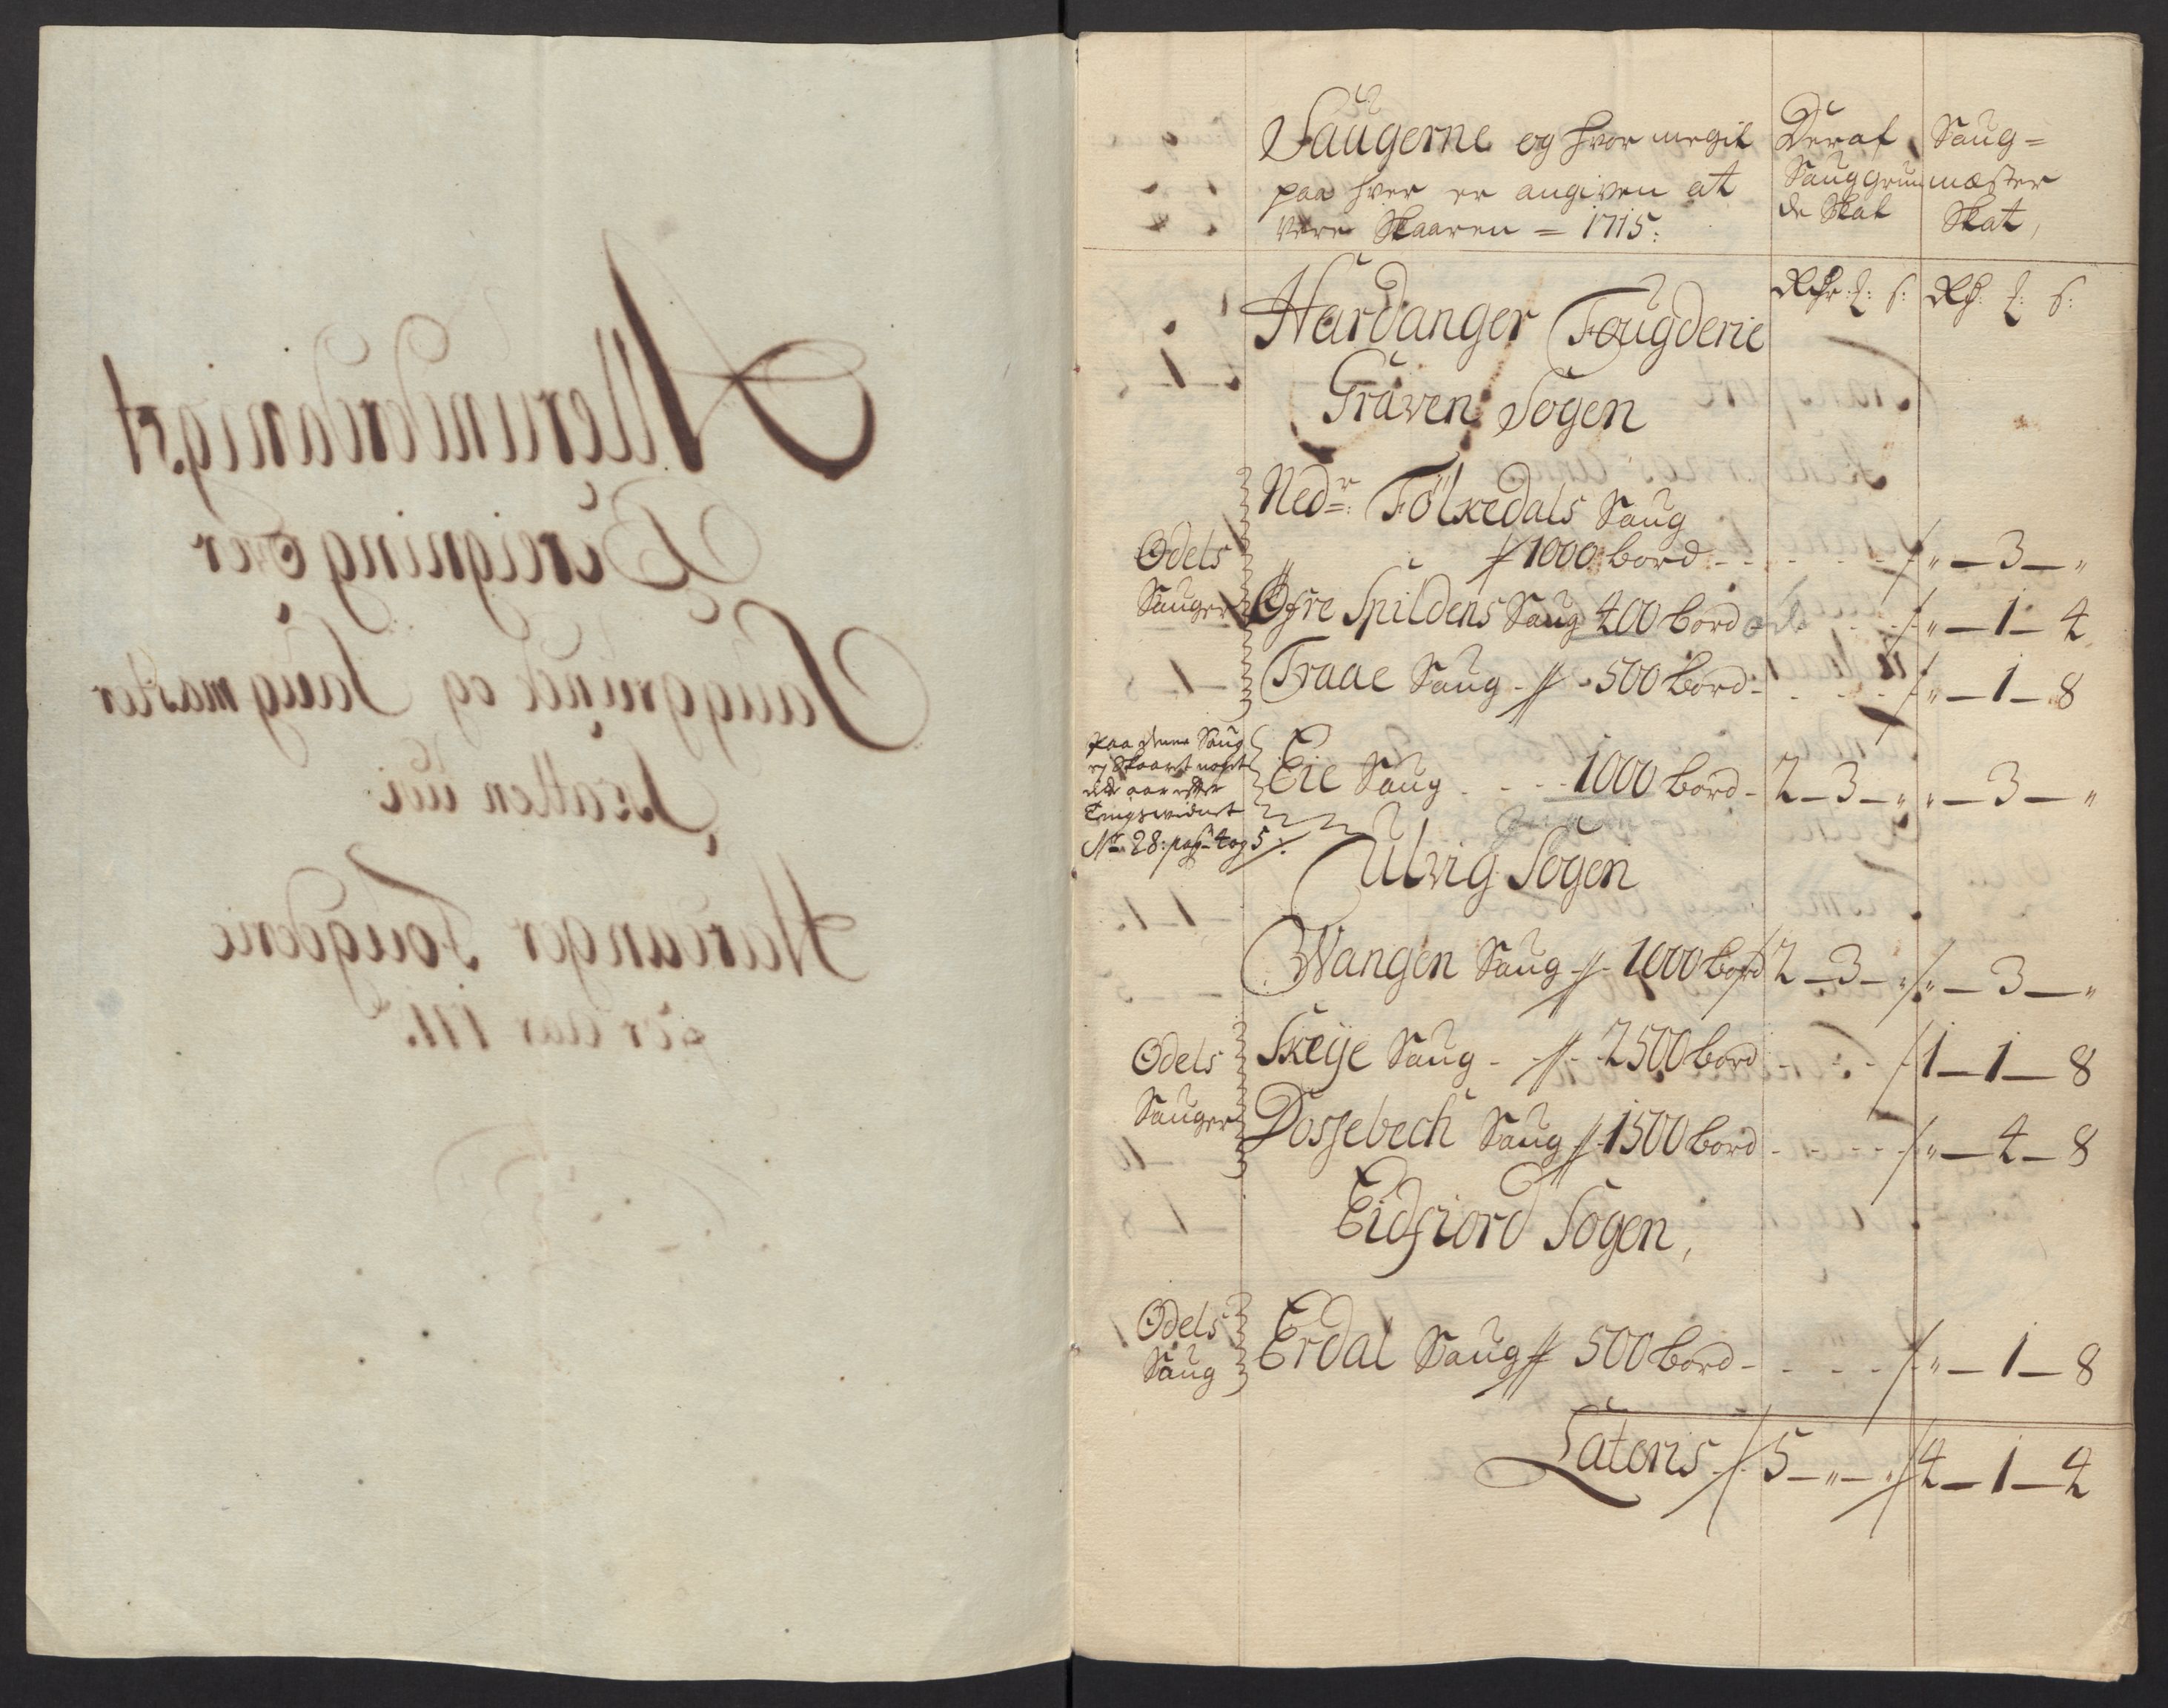 Allerunderdanigst
Bereigning over
Sauggrunde og Saugmæster
Skatten udi
Hardanger Fougderie
for Aar 1715.
Saugerne og hvor megit
paa hver er angiven at
være Skaaren = 1715:
Deraf
Sauggrun
de Skat
Saug=
mæster
Skat,
Hardanger Fougderie
Rdr: ß: Rd: ß:
Graven Sogen
Nedr: Folkedals Saug
Odels
Sauger
1000 bord - - - - " — 3 — "
Øfre Spildens Saug 400 bord - - - " — 1 — 4
Traae Saug - 500 bord - - - " — 1 — 8
paa denne Saug
ej Skaaret noget
dette aar efter
Tingsvidnet
No 28: pag 4 og 5
Eie Saug - - - 1000 bord - 2 — 3 — " " — 3 — "
Ulvig Sogen
Wangen Saug - 1000 bord 2 — 3 — " " — 3 — "
Odels
Sauger
Skeije Saug - - 2500 bord - - - 1 — 1 — 8
Dossebech Saug - 1500 bord - - - - " — 4 — 8
Eidfiord Sogen,
Odels
Saug
Erdal Saug 500 bord - - - - " — 1 — 8
Lateris 5 — " — " 4 — 1 — 4